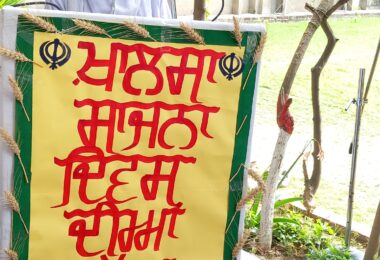 ਖ਼ਾਲਸਾ
ਸਾਜਨਾ
ਦਿਵਸ
ਦੀਆਂ